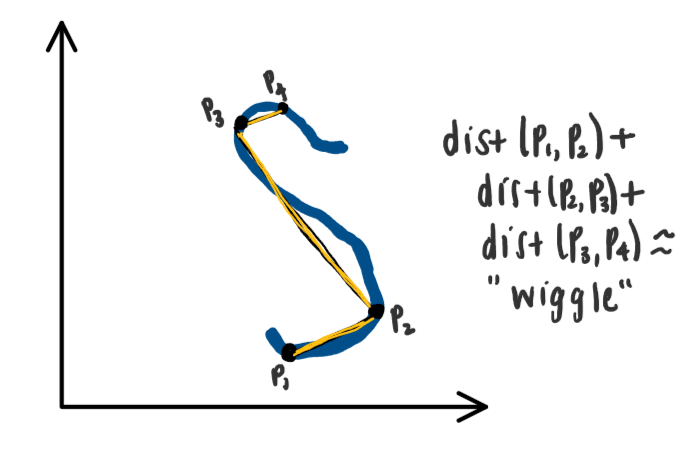 P₄
P₃
P₂
P₁
dist (P₁, P₂) +
dist (P₂, P₃) +
dist (P₃, P₄) ≈
"wiggle"